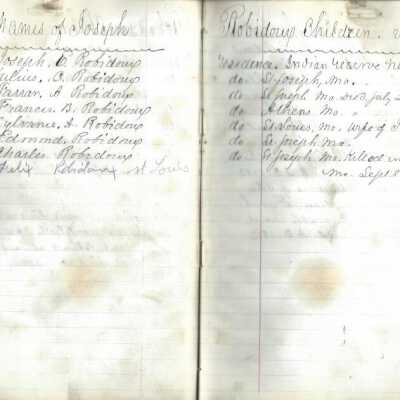 Names of Joseph
Joseph. E. Robidoux
Julius. C. Robidoux
Farran. A Robidoux
Francis. B. Robidoux
Sylvanie. A. Robidoux
Edmond. Robidoux
Charles Robidoux
Felix Robidoux St Louis
Robidoux Children.
residence. Indian reserve
do St Joseph, Mo.
do St Joseph Mo. Died. July 2
do Athens Mo.
do St. Louis, Mo. wife of
do St Joseph, Mo.
do St Joseph Mo. Killed in
Mo. Sept 8